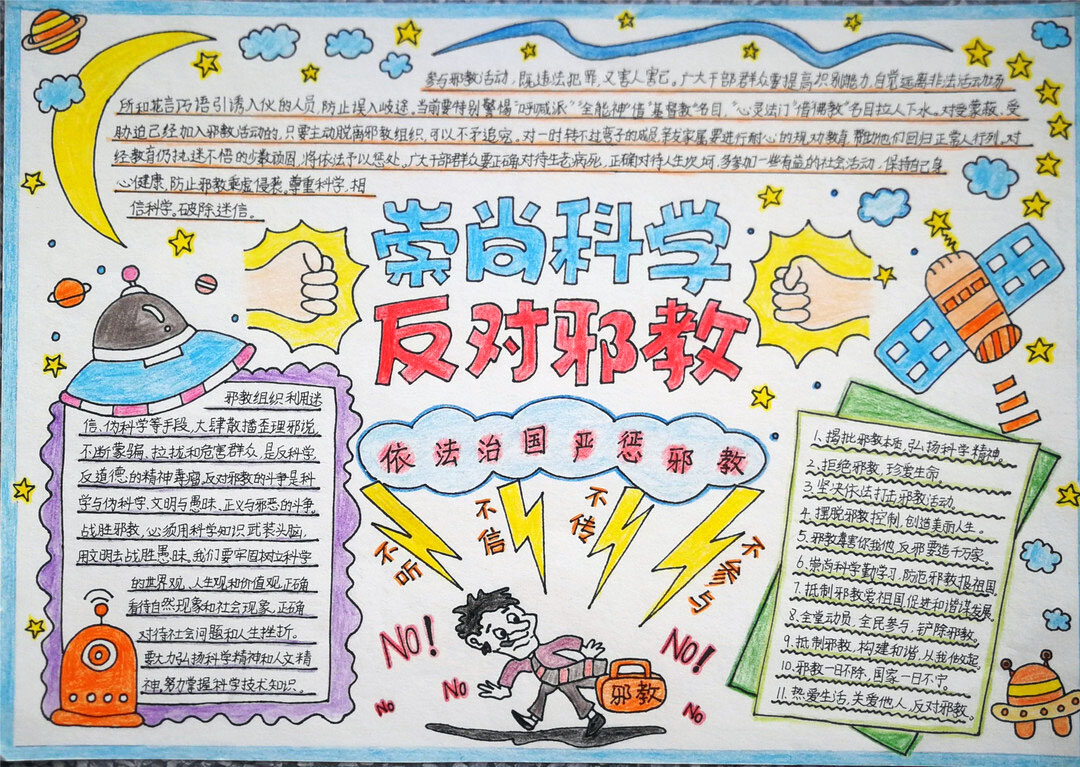 参与邪教活动,既违法犯罪,又害人害己。广大干部群众要提高识别能力,自觉远离非法活动场
所和花言巧语引诱入伙的人员,防止误入歧途。当前要特别警惕"呼喊派""全能神"借"基督教"名目,"心灵法门"借佛教"名目拉人下水。对受蒙蔽、受
胁迫已经加入邪教活动的,只要主动脱离邪教组织,可以不予追究。对一时转不过弯子的成员,亲友家属要进行耐心的规劝教育,帮助他们回归正常人行列。对
经教育仍执迷不悟的少数顽固,将依法予以惩处。广大干部群众要正确对待生老病死,正确对待人生坎坷,多参加一些有益的社会活动,保持自己身
心健康,防止邪教乘虚侵袭。尊重科学,相
信科学。破除迷信。
崇尚科学
反对邪教
依法治国严惩邪教
不听
不信
不传
不参与
NO!
No
No
NO!
No
邪教
邪教组织利用迷
信、伪科学等手段,大肆散播歪理邪说,
不断蒙骗、拉拢和危害群众,是反科学
反道德的精神毒瘤,反对邪教的斗争是科
学与伪科学,文明与愚昧、正义与邪恶的斗争。
战胜邪教,必须用科学知识武装头脑,
用文明去战胜愚昧。我们要牢固树立科学
的世界观、人生观和价值观,正确
看待自然现象和社会现象,正确
对待社会问题和人生挫折。
要大力弘扬科学精神和人文精
神,努力掌握科学技术知识。
1、揭批邪教本质,弘扬科学精神。
2、拒绝邪教,珍爱生命。
3、坚决依法打击邪教活动。
4、摆脱邪教控制,创造美丽人生。
5、邪教毒害你我他,反邪要造千万家。
6、崇尚科学勤学习,防范邪教报祖国。
7、抵制邪教爱祖国促进和谐谋发展
8、全党动员,全民参与,铲除邪教。
9、抵制邪教,构建和谐,从我做起
10、邪教一日不除,国家一日不宁。
11、热爱生活,关爱他人,反对邪教。